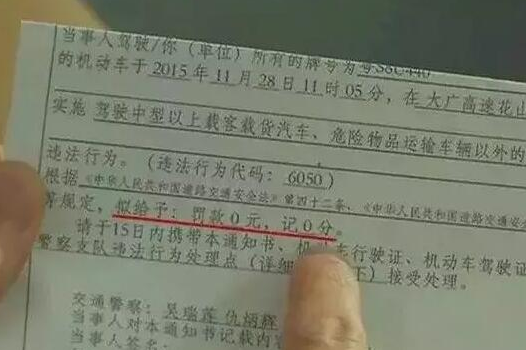 当事人驾驶/你（单位）所有的号牌为粤S6C440
的机动车于2015年11月28日11时05分，在大广高速花山
实施驾驶中型以上载客载货汽车、危险物品运输车辆以外的
违法行为。（违法行为代码：6050）
根据《中华人民共和国道路交通安全法》第四十二条、《中华人民共和国道路交通安
等规定，拟给予：罚款0元，记0分。
请于15日内携带本通知书、机 车行驶证、机动车驾驶证
警察支队违法行为处理点（详细 下）接受处理。
交通警察：吴瑞莲 仇炳辉
当事人对本通知书记载内容
当事人签名：